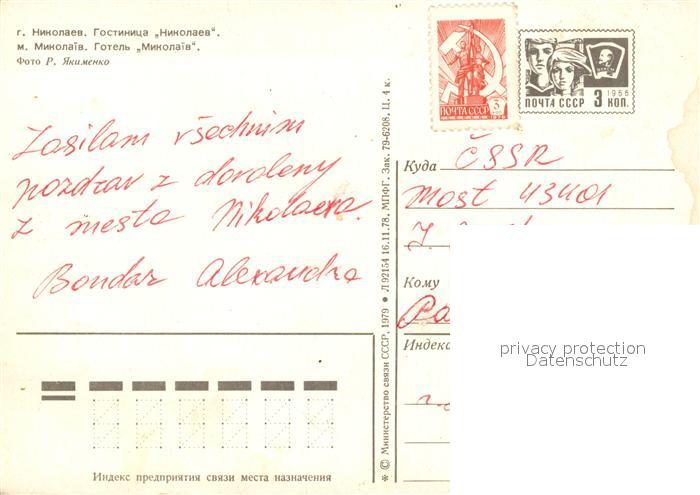 г. Николаев. Гостиница „Николаев“.
м. Миколаїв. Готель „Миколаїв“.
Фото Р. Якименко
Zasilam všechnim
pozdrav z dovoleny
z mesta Nikolaeva.
Bondar Alexandra
✱ © Министерство связи СССР, 1979 ● Л 92154 16.11.78. МПФГ. Зак. 79-6208. Ц. 4 к.
ПОЧТА СССР 3 КОП
1976
ВЛКСМ
1966
ПОЧТА СССР 3 КОП.
Куда ČSSR
Most 43401
Кому
Индекс
privacy protection
Datenschutz
Индекс предприятия связи места назначения